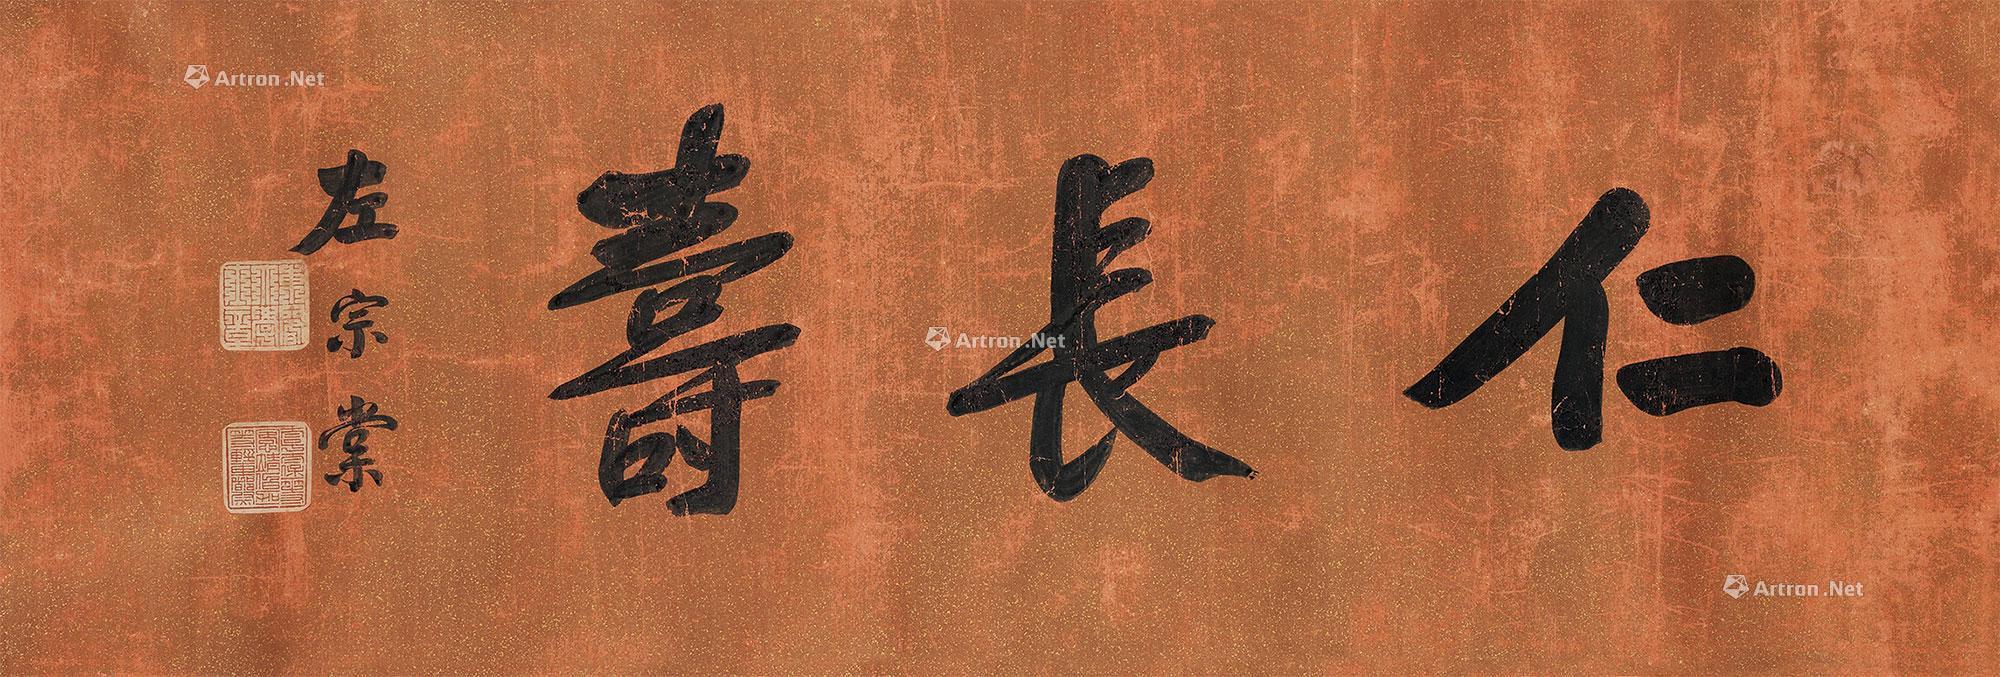 仁長壽
左宗棠
Artron.Net
Artron.Net
Artron.Net